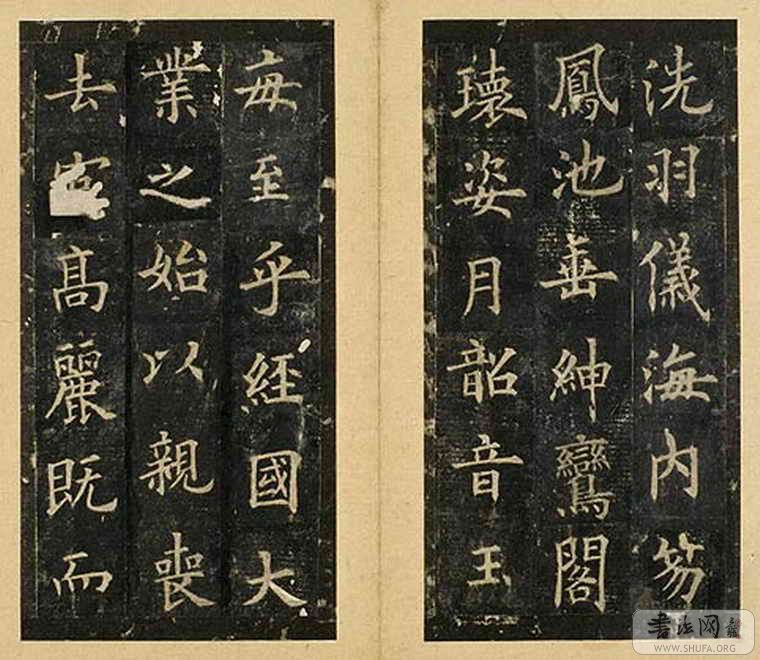 洗羽儀海内笏
鳳池垂紳鸞閣
瓌姿月韶音玉
每至乎經國大
業之始以親喪
去官高麗既而
书法网
WWW.SHUFA.ORG